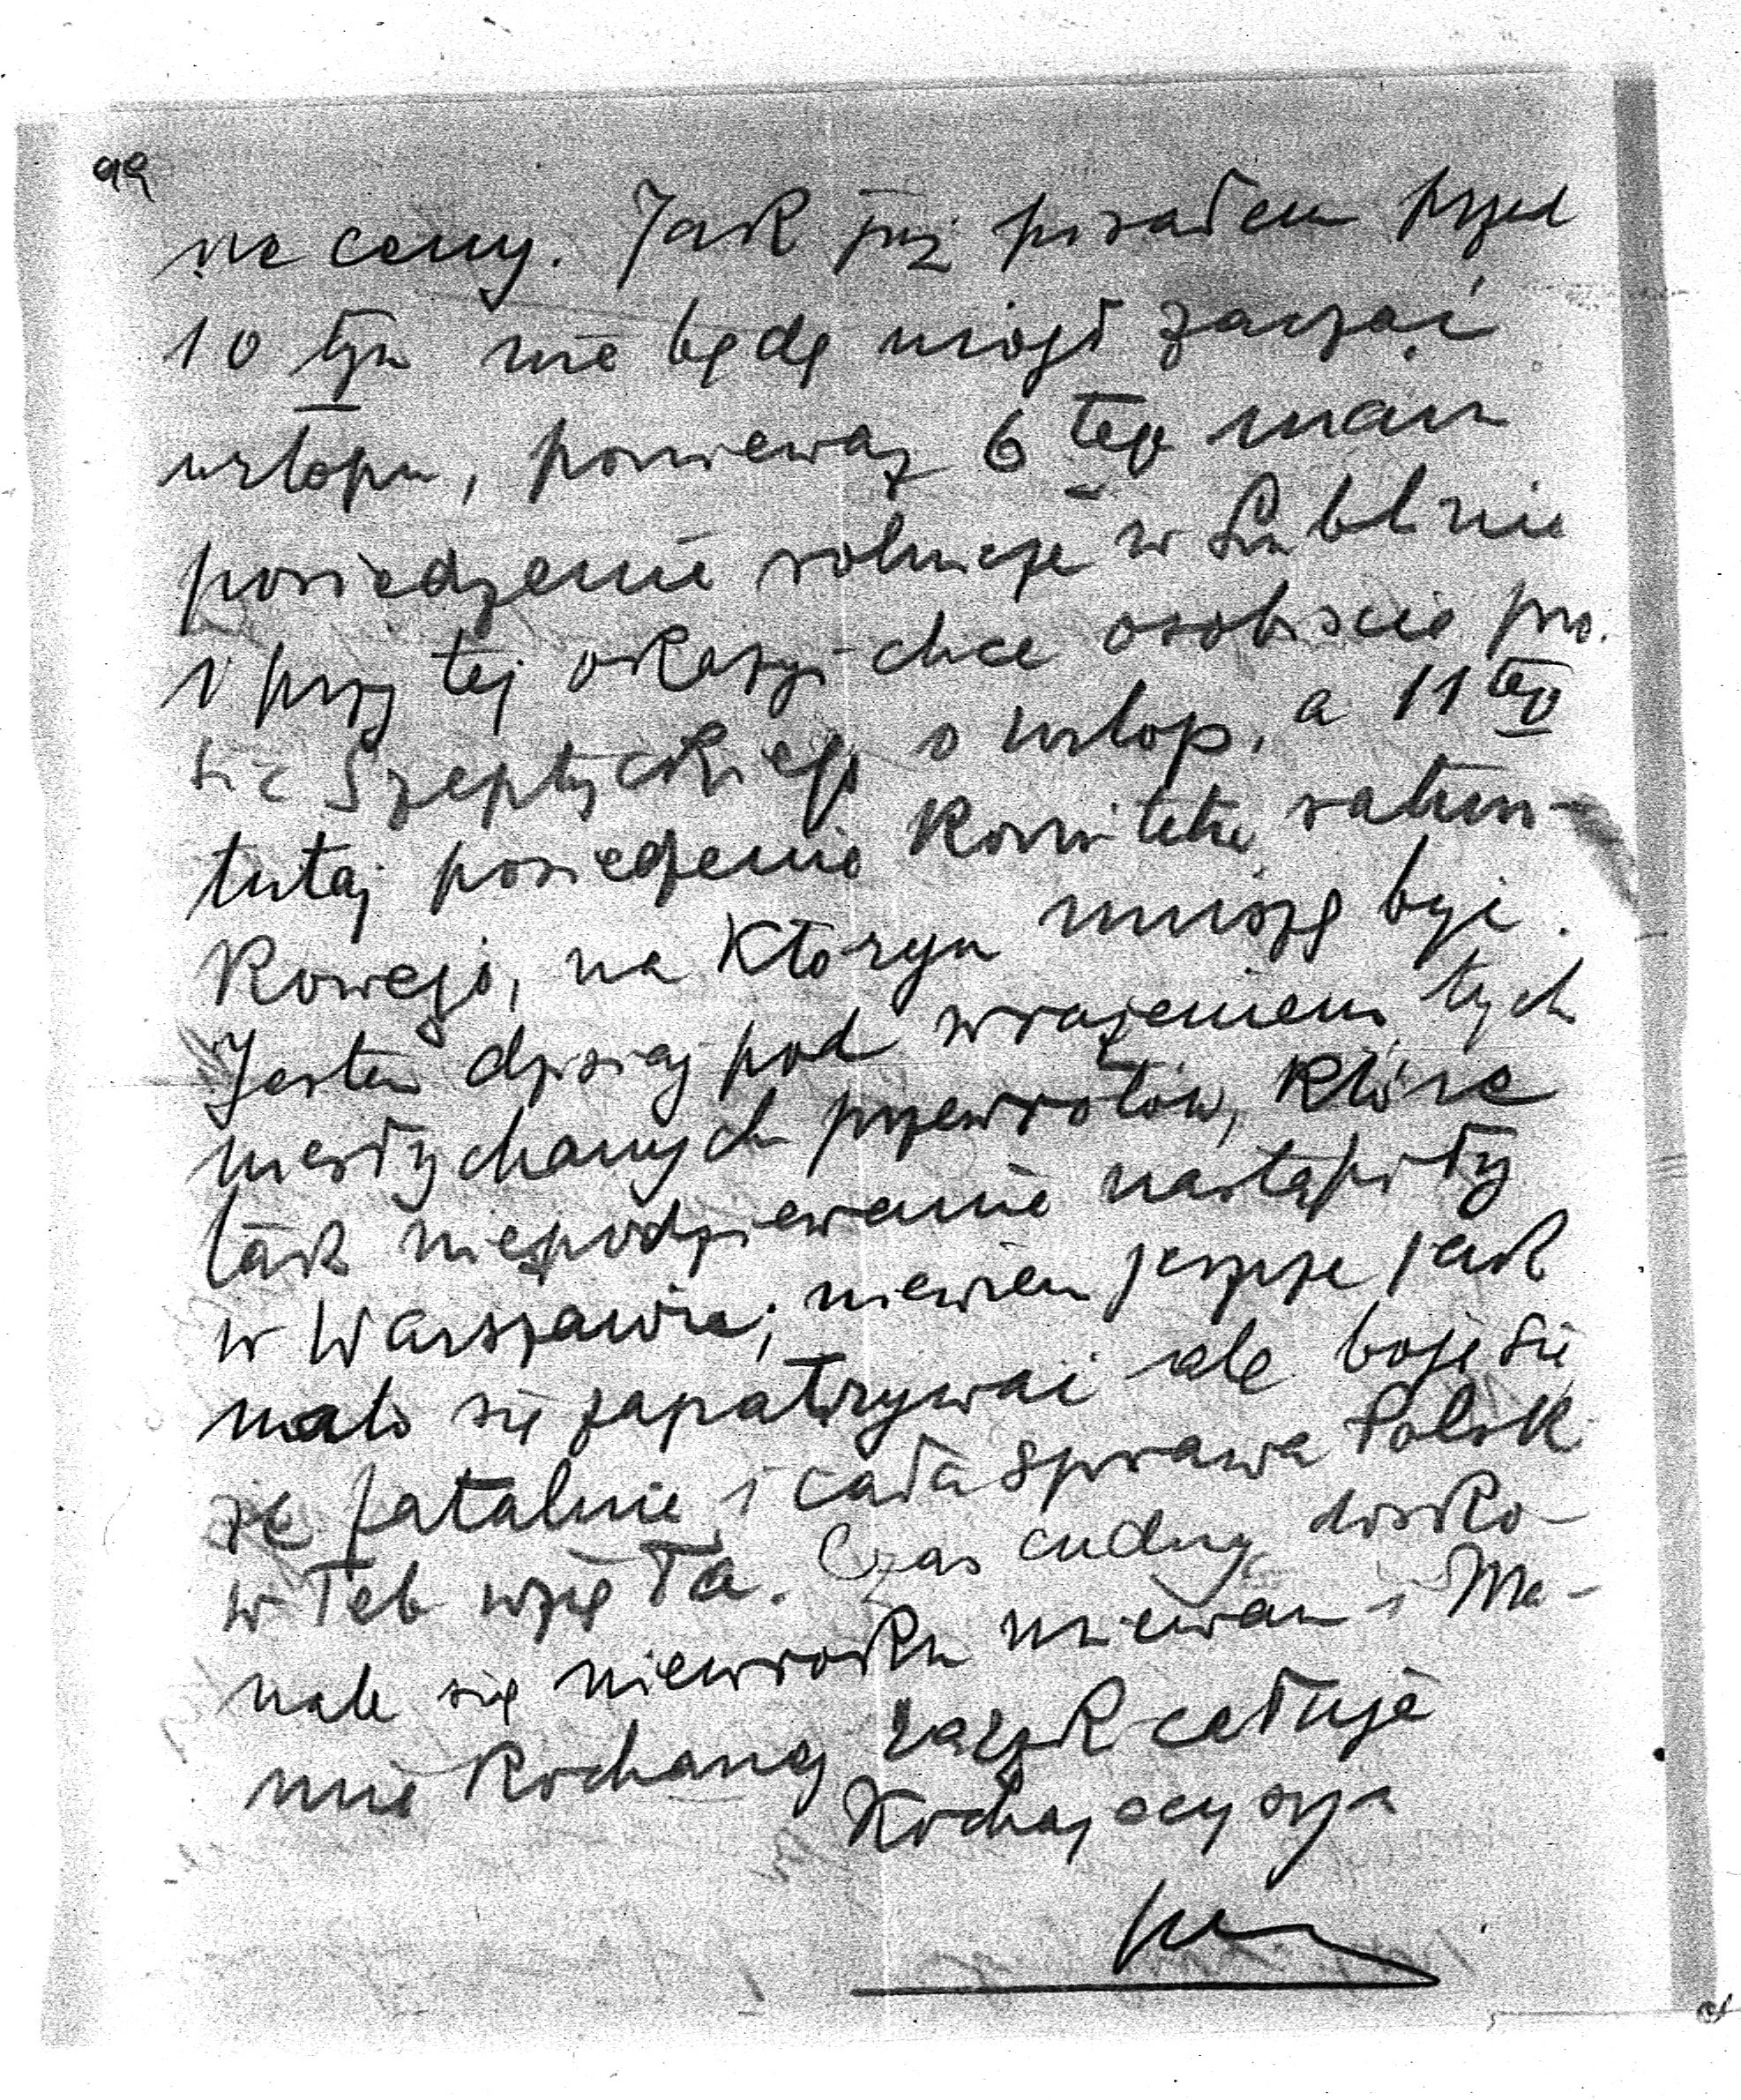 ne ceny. Jak już pisałem przed
10 tym nie będę mógł zacząć
urlopu, ponieważ 6 tego mam
posiedzenie rolnicze w Lublinie
i przy tej okazyi chce osobiście pro.
sić Szeptyckiego o urlop, a 11 tego
tutaj posiedzenie Komitetu ratun-
kowego, na którym muszę być.
Jestem dzisiaj pod wrażeniem tych
niesłychanych przewrotów, które
tak niespodziewanie nastąpiły
w Warszawie; niewiem jeszcze jak
na to się zapatrywać ale boję się
że fatalnie i cała sprawa Polsk
w łeb wzięła. Czas cudny, dosko-
nale się niewroku miewam i Ma-
mie Kochanej rączk całuję
Kochający syn